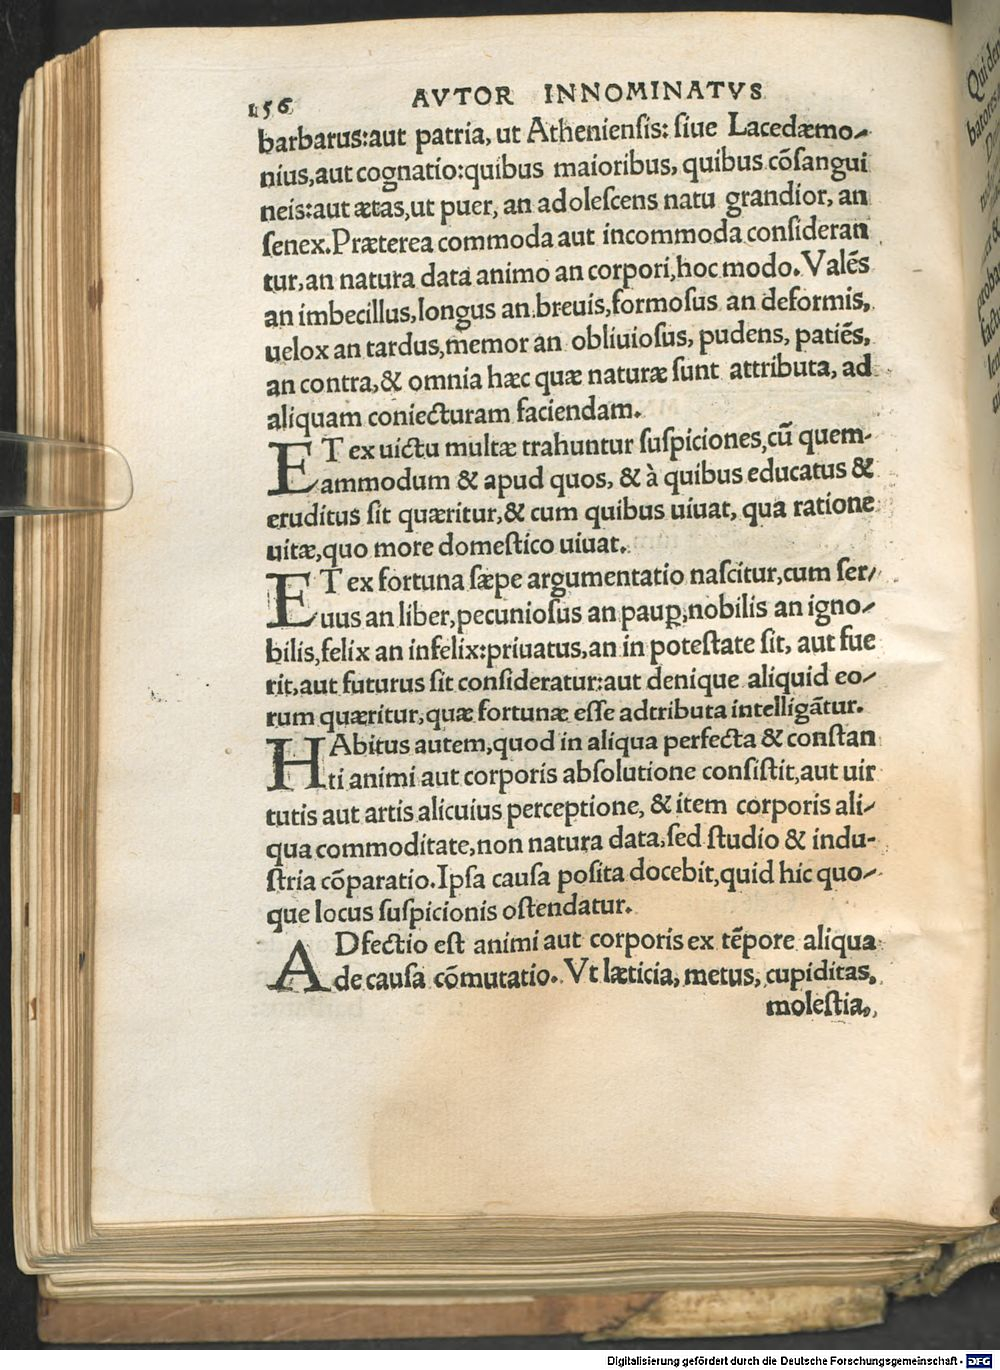 156 AVTOR INNOMINATVS
barbarus:aut patria, ut Athenienſis: ſiue Lacedæmo-
nius,aut cognatio:quibus maioribus, quibus cõſangui
neis:aut ætas,ut puer, an adoleſcens natu grandior, an
ſenex.Præterea commoda aut incommoda conſideran
tur,an natura data animo an corpori,hoc modo. Valẽs
an imbecillus,longus an breuis,formoſus an deformis,
uelox an tardus,memor an obliuioſus, pudens, patiẽs,
an contra,& omnia hæc quæ naturæ ſunt attributa, ad
aliquam coniecturam faciendam.
ET ex uictu multæ trahuntur ſuſpiciones,cũ quem-
ammodum & apud quos, & à quibus educatus &
eruditus ſit quæritur,& cum quibus uiuat, qua ratione
uitæ,quo more domeſtico uiuat.
ET ex fortuna ſæpe argumentatio naſcitur,cum ſer-
uus an liber,pecunioſus an paup̱,nobilis an igno-
bilis,felix an infelix:priuatus,an in poteſtate ſit, aut fue
rit,aut futurus ſit conſideratur:aut denique aliquid eo-
rum quæritur,quæ fortunæ eſſe adtributa intelligãtur.
HAbitus autem,quod in aliqua perfecta & conſtan
ti animi aut corporis abſolutione conſiſtit,aut uir
tutis aut artis alicuius perceptione, & item corporis ali-
qua commoditate,non natura data,ſed ſtudio & indu-
ſtria cõparatio.Ipſa cauſa poſita docebit,quid hic quo-
que locus ſuſpicionis oſtendatur.
ADfectio eſt animi aut corporis ex tẽpore aliqua
de cauſa cõmutatio. Vt læticia, metus, cupiditas,
moleſtia,
Digitalisierung gefördert durch die Deutsche Forschungsgemeinschaft - DFG